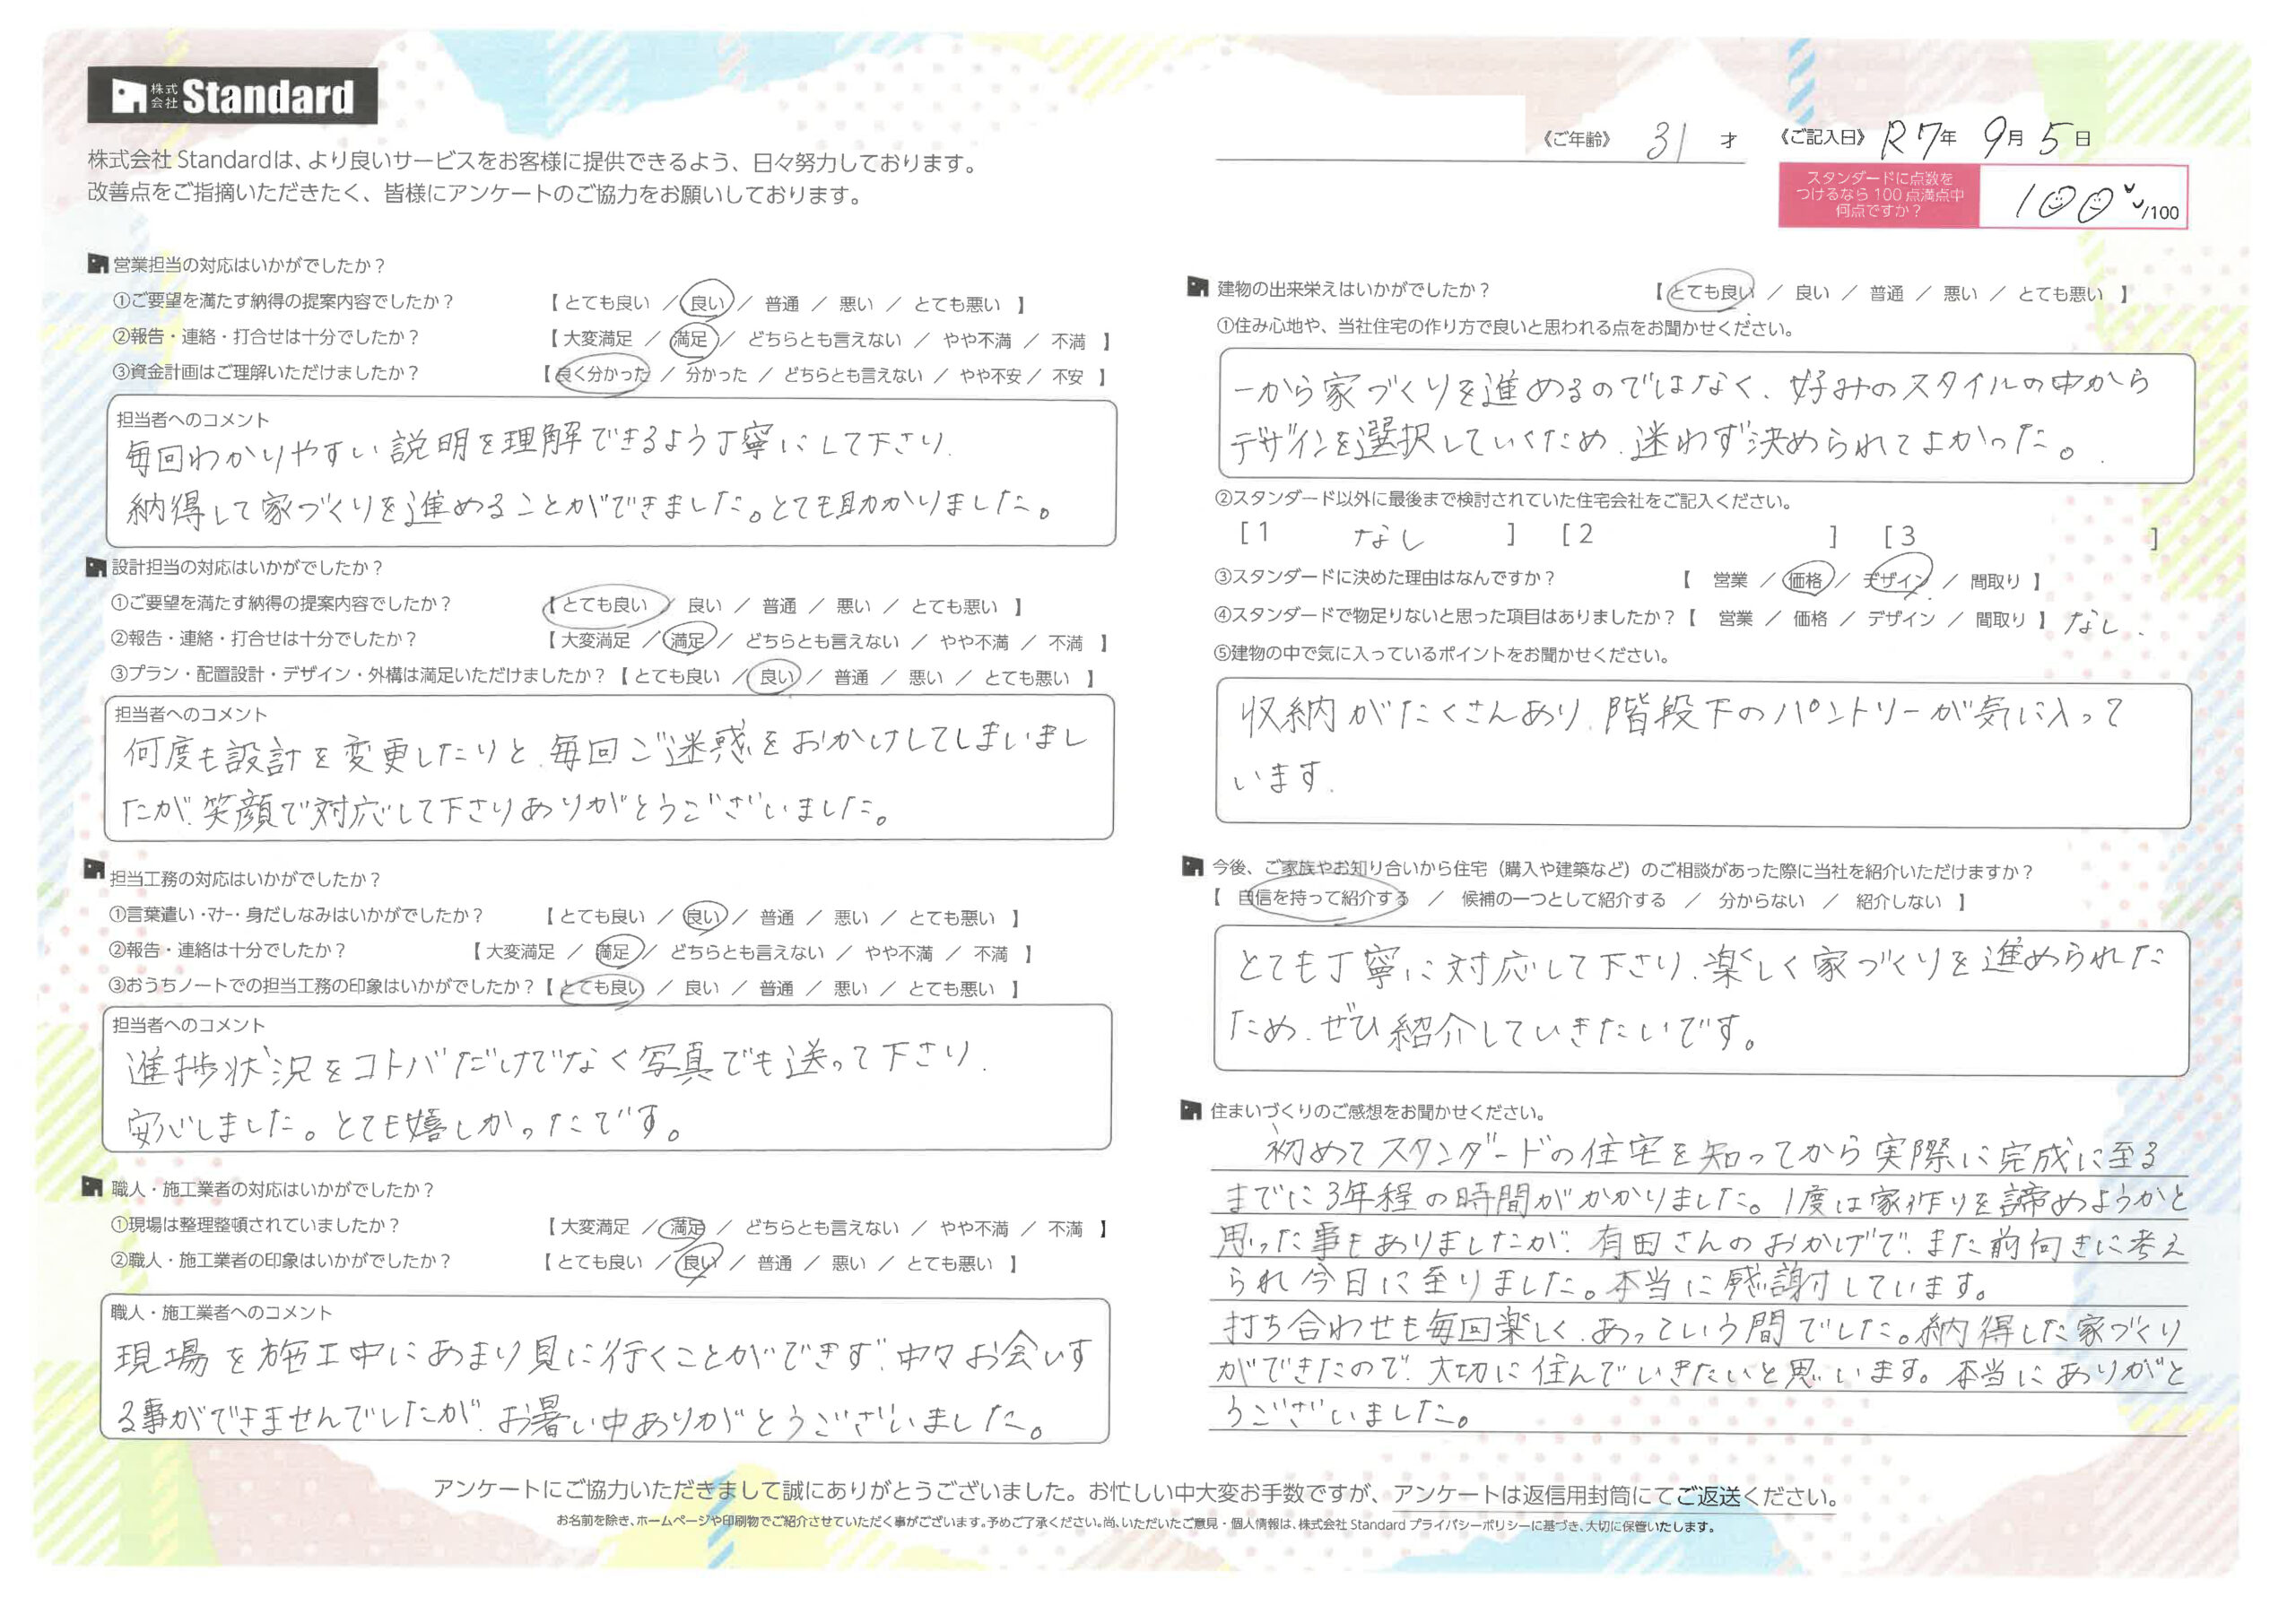 株式会社 Standard
株式会社 Standardは、より良いサービスをお客様に提供できるよう、日々努力しております。
改善点をご指摘いただきたく、皆様にアンケートのご協力をお願いしております。
《ご年齢》 31 才 《ご記入日》 R7年 9月 5日
スタンダードに点数を
つけるなら100点満点中
何点ですか?
100 /100
営業担当の対応はいかがでしたか?
①ご要望を満たす納得の提案内容でしたか? 【 とても良い / 良い / 普通 / 悪い / とても悪い 】
②報告・連絡・打合せは十分でしたか? 【 大変満足 / 満足 / どちらとも言えない / やや不満 / 不満 】
③資金計画はご理解いただけましたか? 【 良く分かった / 分かった / どちらとも言えない / やや不安 / 不安 】
担当者へのコメント
毎回わかりやすい説明を理解できるよう丁寧にして下さり、
納得して家づくりを進めることができました。とても助かりました。
設計担当の対応はいかがでしたか?
①ご要望を満たす納得の提案内容でしたか? 【 とても良い / 良い / 普通 / 悪い / とても悪い 】
②報告・連絡・打合せは十分でしたか? 【 大変満足 / 満足 / どちらとも言えない / やや不満 / 不満 】
③プラン・配置設計・デザイン・外構は満足いただけましたか? 【 とても良い / 良い / 普通 / 悪い / とても悪い 】
担当者へのコメント
何度も設計を変更したりと、毎回ご迷惑をおかけしてしまいまし
たが、笑顔で対応して下さりありがとうございました。
担当工務の対応はいかがでしたか?
①言葉遣い・マナー・身だしなみはいかがでしたか? 【 とても良い / 良い / 普通 / 悪い / とても悪い 】
②報告・連絡は十分でしたか? 【 大変満足 / 満足 / どちらとも言えない / やや不満 / 不満 】
③おうちノートでの担当工務の印象はいかがでしたか? 【 とても良い / 良い / 普通 / 悪い / とても悪い 】
担当者へのコメント
進捗状況をコトバだけでなく写真でも送って下さり、
安心しました。とても嬉しかったです。
職人・施工業者の対応はいかがでしたか?
①現場は整理整頓されていましたか? 【 大変満足 / 満足 / どちらとも言えない / やや不満 / 不満 】
②職人・施工業者の印象はいかがでしたか? 【 とても良い / 良い / 普通 / 悪い / とても悪い 】
職人・施工業者へのコメント
現場を施工中にあまり見に行くことができず、中々お会いす
る事ができませんでしたが、お暑い中ありがとうございました。
建物の出来栄えはいかがでしたか? 【 とても良い / 良い / 普通 / 悪い / とても悪い 】
①住み心地や、当社住宅の作り方で良いと思われる点をお聞かせください。
一から家づくりを進めるのではなく、好みのスタイルの中から
デザインを選択していくため、迷わず決められてよかった。
②スタンダード以外に最後まで検討されていた住宅会社をご記入ください。
[1 なし ] [2 ] [3 ]
③スタンダードに決めた理由はなんですか? 【 営業 / 価格 / デザイン / 間取り 】
④スタンダードで物足りないと思った項目はありましたか? 【 営業 / 価格 / デザイン / 間取り 】 なし.
⑤建物の中で気に入っているポイントをお聞かせください。
収納がたくさんあり、階段下のパントリーが気に入って
います.
今後、ご家族やお知り合いから住宅(購入や建築など)のご相談があった際に当社を紹介いただけますか?
【 自信を持って紹介する / 候補の一つとして紹介する / 分からない / 紹介しない 】
とても丁寧に対応して下さり、楽しく家づくりを進められた
ため、ぜひ紹介していきたいです。
住まいづくりのご感想をお聞かせください。
初めてスタンダードの住宅を知ってから実際に完成に至る
までに3年程の時間がかかりました。1度は家作りを諦めようかと
思った事もありましたが、有田さんのおかげで、また前向きに考え
られ今日に至りました。本当に感謝しています。
打ち合わせも毎回楽しく、あっという間でした。納得した家づくり
ができたので、大切に住んでいきたいと思います。本当にありがと
うございました。
アンケートにご協力いただきまして誠にありがとうございました。お忙しい中大変お手数ですが、アンケートは返信用封筒にてご返送ください。
お名前を除き、ホームページや印刷物でご紹介させていただく事がございます。予めご了承ください。尚、いただいたご意見・個人情報は、株式会社 Standard プライバシーポリシーに基づき、大切に保管いたします。